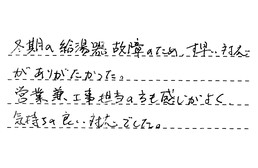 冬期の給湯器故障のため、すばやい対応
がありがたかった。
営業兼工事担当の方も感じがよく、
気持ちの良い対応でした。